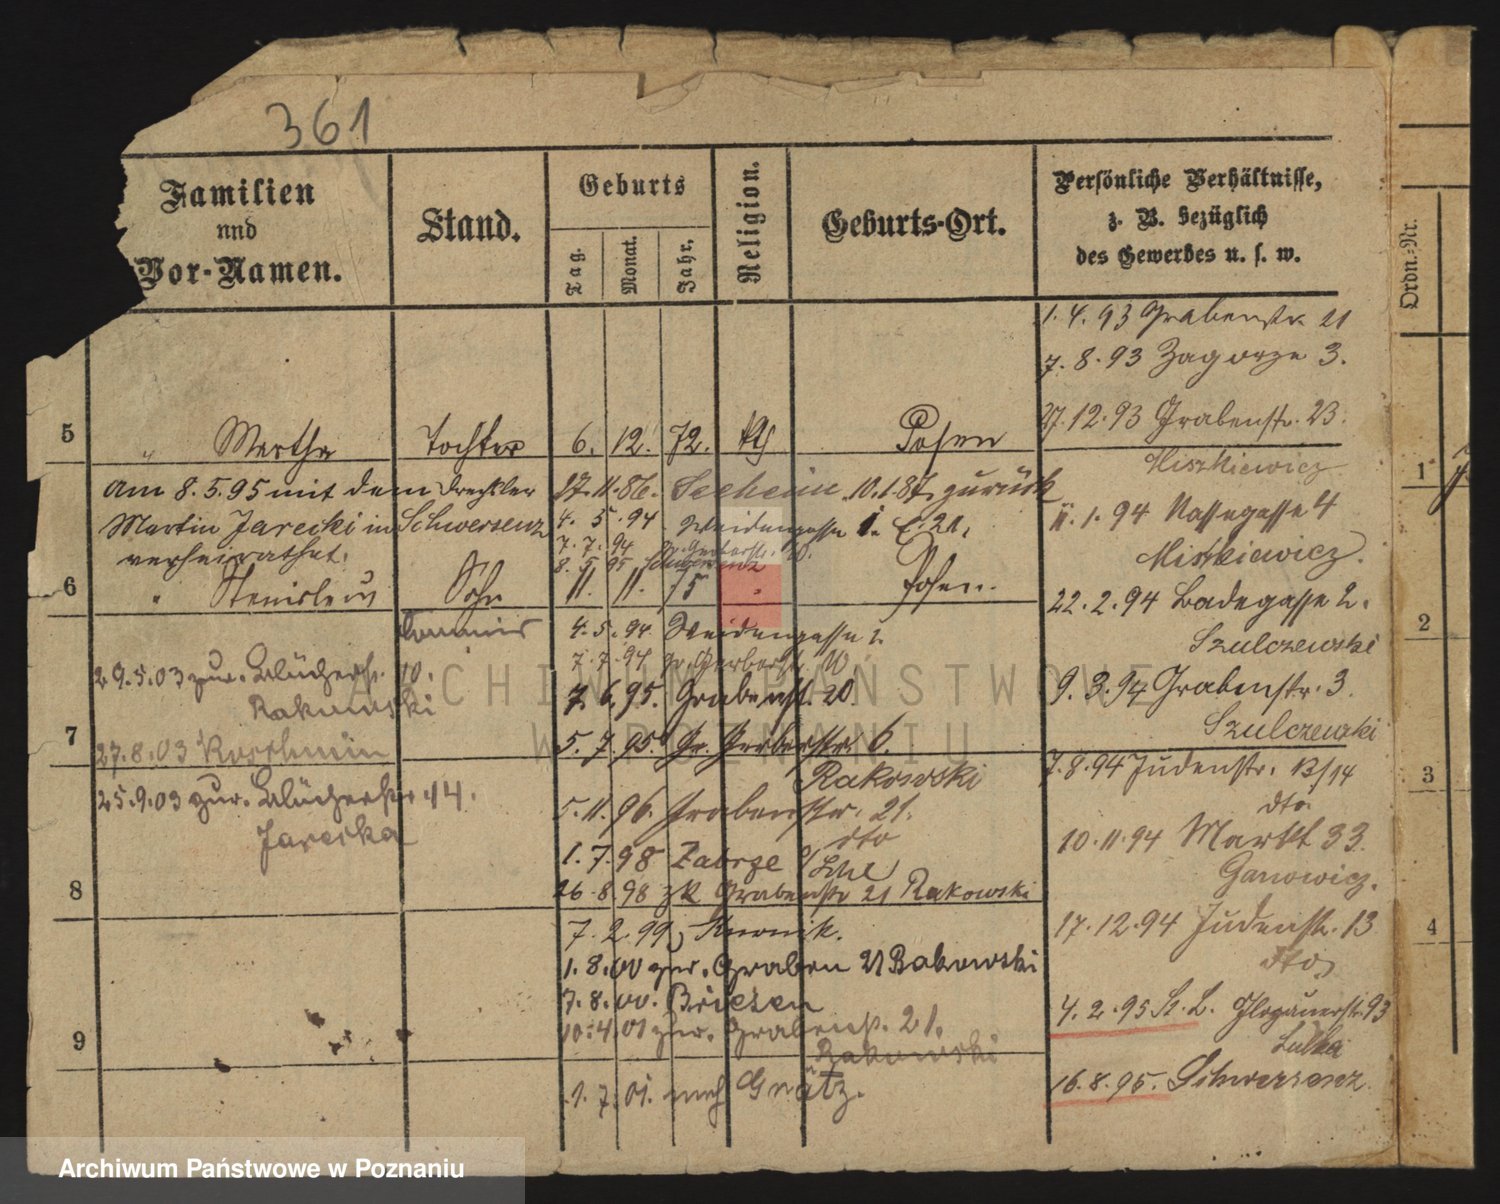 361
Familien
und
Vor-Namen.
Stand.
Geburts
Tag.
Monat.
Jahr.
Religion.
Geburts-Ort.
Persönliche Verhältnisse,
z. B. bezüglich
des Gewerbes u. s. w.
Ordn.-Nr.
1.4.93 Grabenstr. 21
7.8.93 Zagorze 3.
27.12.93 Grabenstr. 23.
5 " Martha Tochter 6. 12. 72. kth Posen
Miszkiewicz
am 8.5.95 mit dem Drechsler
Martin Jarecki in Schwersenz
verheirathet.
27.11.86. 10.1.87. zurück
4. 5. 94 Weidengasse
7. 7. 94 Gr. Gerberstr.
8. 5. 95 Schwersenz
II.1.94 Nassegasse 4
Miskiewicz.
6 " Stanislaus Sohn 11. 11. 75 " Posen.
22.2.94 Badegasse 2.
Szulczewski
4.5.94 Weidengasse 2
7.7.94 Gr. Gerberstr. 10.
7.6.95. Grabenstr. 20.
5.7.95. Gr. Gerberstr. 6.
29.5.03 zur. Blücherstr. 10.
Rakowski
27.8.03 Koschmin
9.3.94 Grabenstr. 3.
Szulczewski
7
Rakowski
7.8.94 Judenstr. 13/14
dto.
25.9.03 zur. Blücherstr. 14.
Jarecka
5.11.96. Grabenstr. 21.
dto
1.7.98 Zabrze
26.8.98 zk Grabenstr 21 Rakowski
10.11.94 Markt 33.
Ganowicz.
8
7.2.99 Kurnik.
1.8.00 zur. Graben 21 Rakowski
7.8.00. Briesen
10.4.01 zur. Grabenstr. 21.
Rakowski
17.12.94 Judenstr. 13
dto
4.2.95 St. L. Glogauerstr. 93
9
1.7.01. nach Grätz.
16.8.95. Schwersenz
1
2
3
4
ARCHIWUM PAŃSTWOWE
W POZNANIU
Archiwum Państwowe w Poznaniu